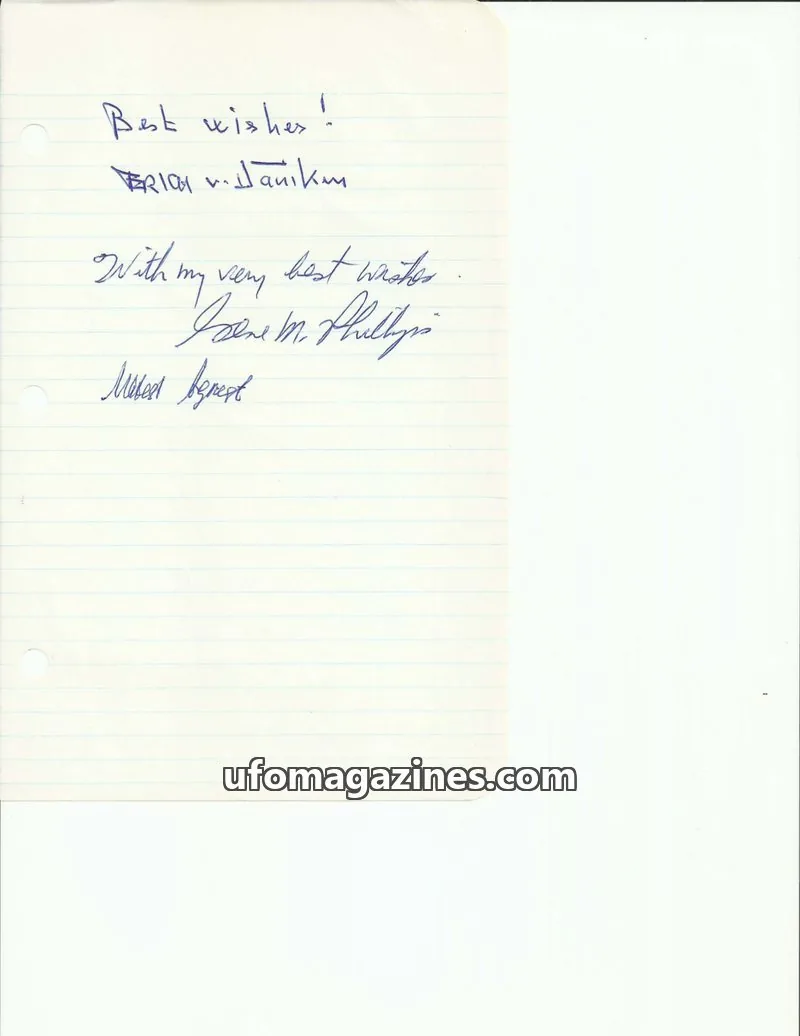 Best wishes!
ERICH v. Däniken
With my very best wishes.
Gene M. Phillips
Matest Agrest
ufomagazines.com